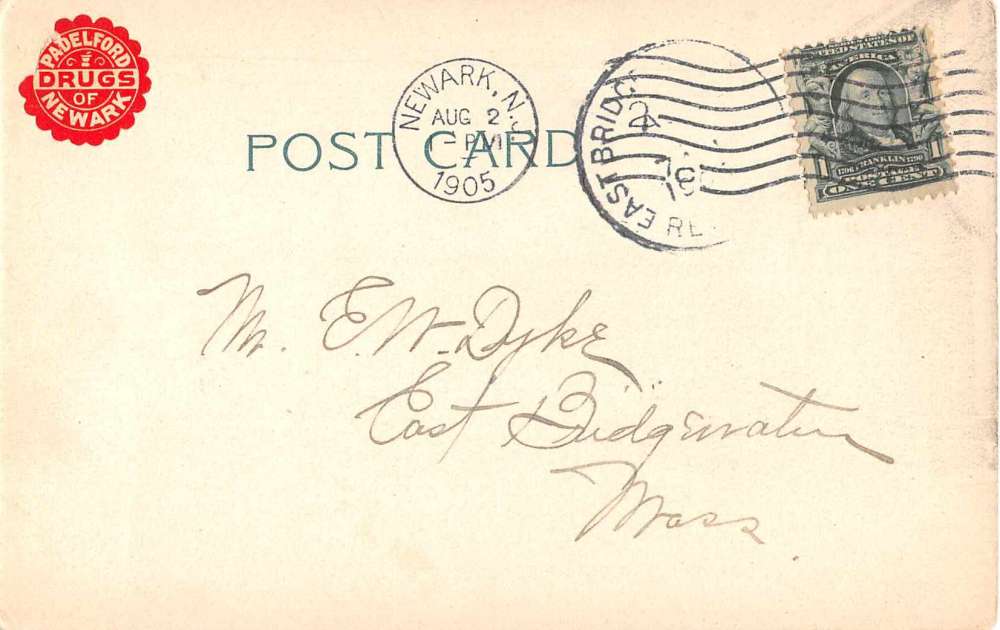 PADELFORD
DRUGS
OF
NEWARK
POST CARD
NEWARK, N.J.
AUG 2
PM
1905
EAST BRIDG
2
RE
UNITED STATES OF
AMERICA
1706 FRANKLIN 1790
POSTAGE
1 ONE CENT 1
Mr. E. W. Dyke
East Bridgewater
Mass.